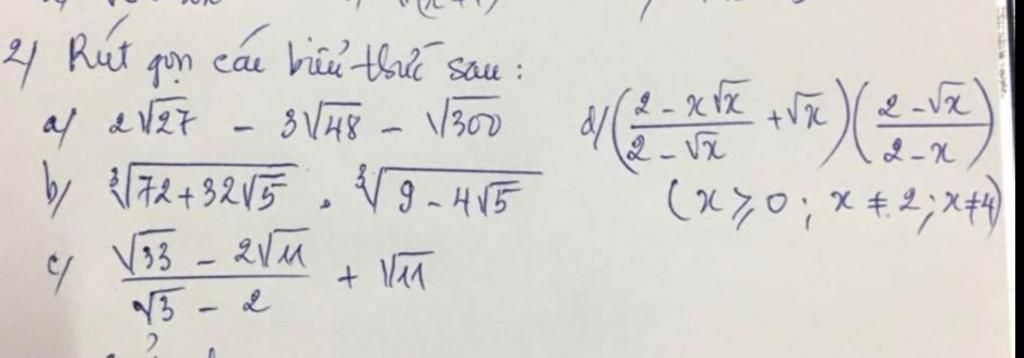 2/ Rút gọn các biểu thức sau:
a/ 2√27 - 3√48 - √300
b/ ∛(72 + 32√5) . ∛(9 - 4√5)
c/ (√33 - 2√11)/(√3 - 2) + √11
d/ ((2 - x√x)/(2 - √x) + √x)((2 - √x)/(2 - x))
(x ≥ 0; x ≠ 2; x ≠ 4)